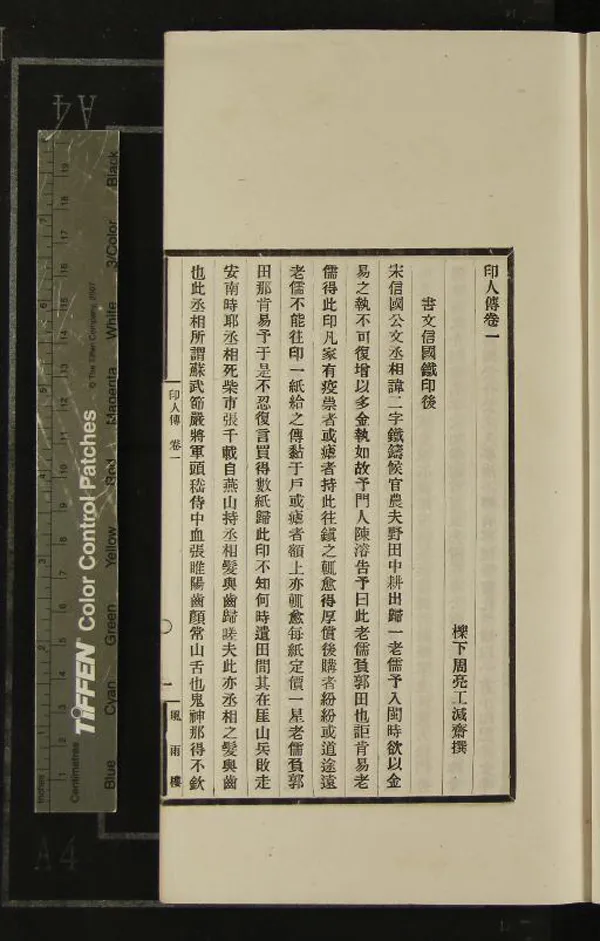 印人傳卷一
櫟下周亮工減齋撰
書文信國鐵印後
宋信國公文丞相諱二字鐵鑄候官農夫野田中耕出歸一老儒予入閩時欲以金
易之執不可復增以多金執如故予門人陳濬告予曰此老儒負郭田也詎肯易老
儒得此印凡家有疫祟者或瘧者持此往鎮之輒愈得厚償後購者紛紛或道途遠
老儒不能往印一紙給之傳黏于戶或瘧者額上亦輒愈每紙定價一星老儒負郭
田那肯易予于是不忍復言買得數紙歸此印不知何時遺田間其在厓山兵敗走
安南時耶丞相死柴市張千載自燕山持丞相髮與齒歸嗟夫此亦丞相之髮與齒
也此丞相所謂蘇武節嚴將軍頭嵇侍中血張睢陽齒顏常山舌也鬼神那得不欽
印人傳 卷一
一
風雨樓
A4
A4
TIFFEN Color Control Patches
© The Tiffen Company, 2007
Inches
Centimetres
Blue
Cyan
Green
Yellow
Red
Magenta
White
3/Color
Black